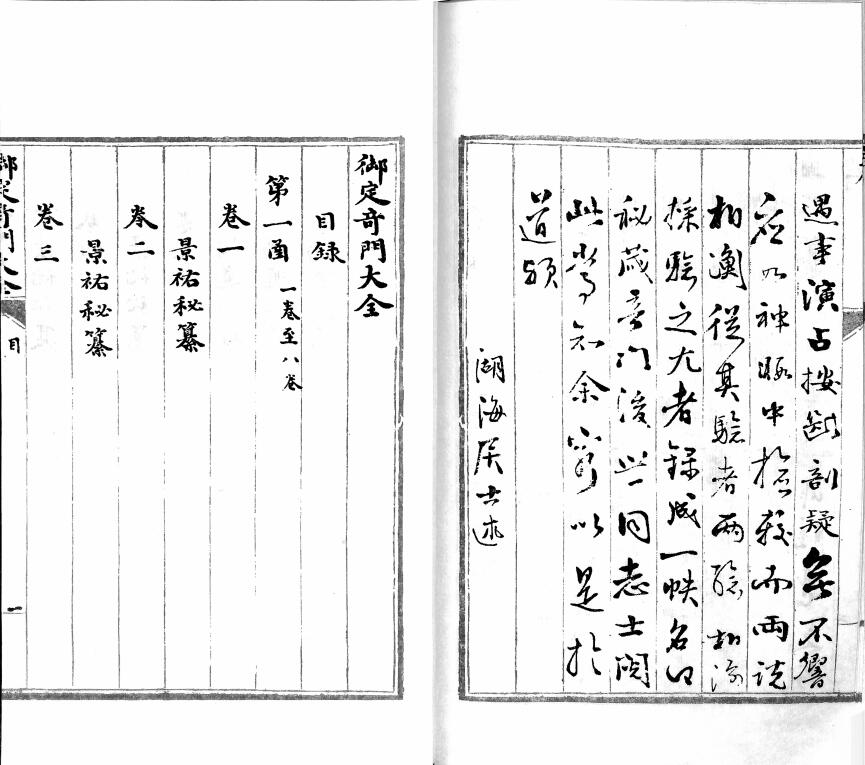 遇事演占按斷剖疑無不響
應如神暇中而兩說
相從其驗者兩驗相
採驗之尤者錄成一帙名曰
秘藏奇門後此同志士閱
此當知余以是於
道
湖海居士述
御定奇門大全
目錄
第一函 一卷至八卷
卷一
景祐秘纂
卷二
景祐秘纂
卷三
御定奇門大全 目 一